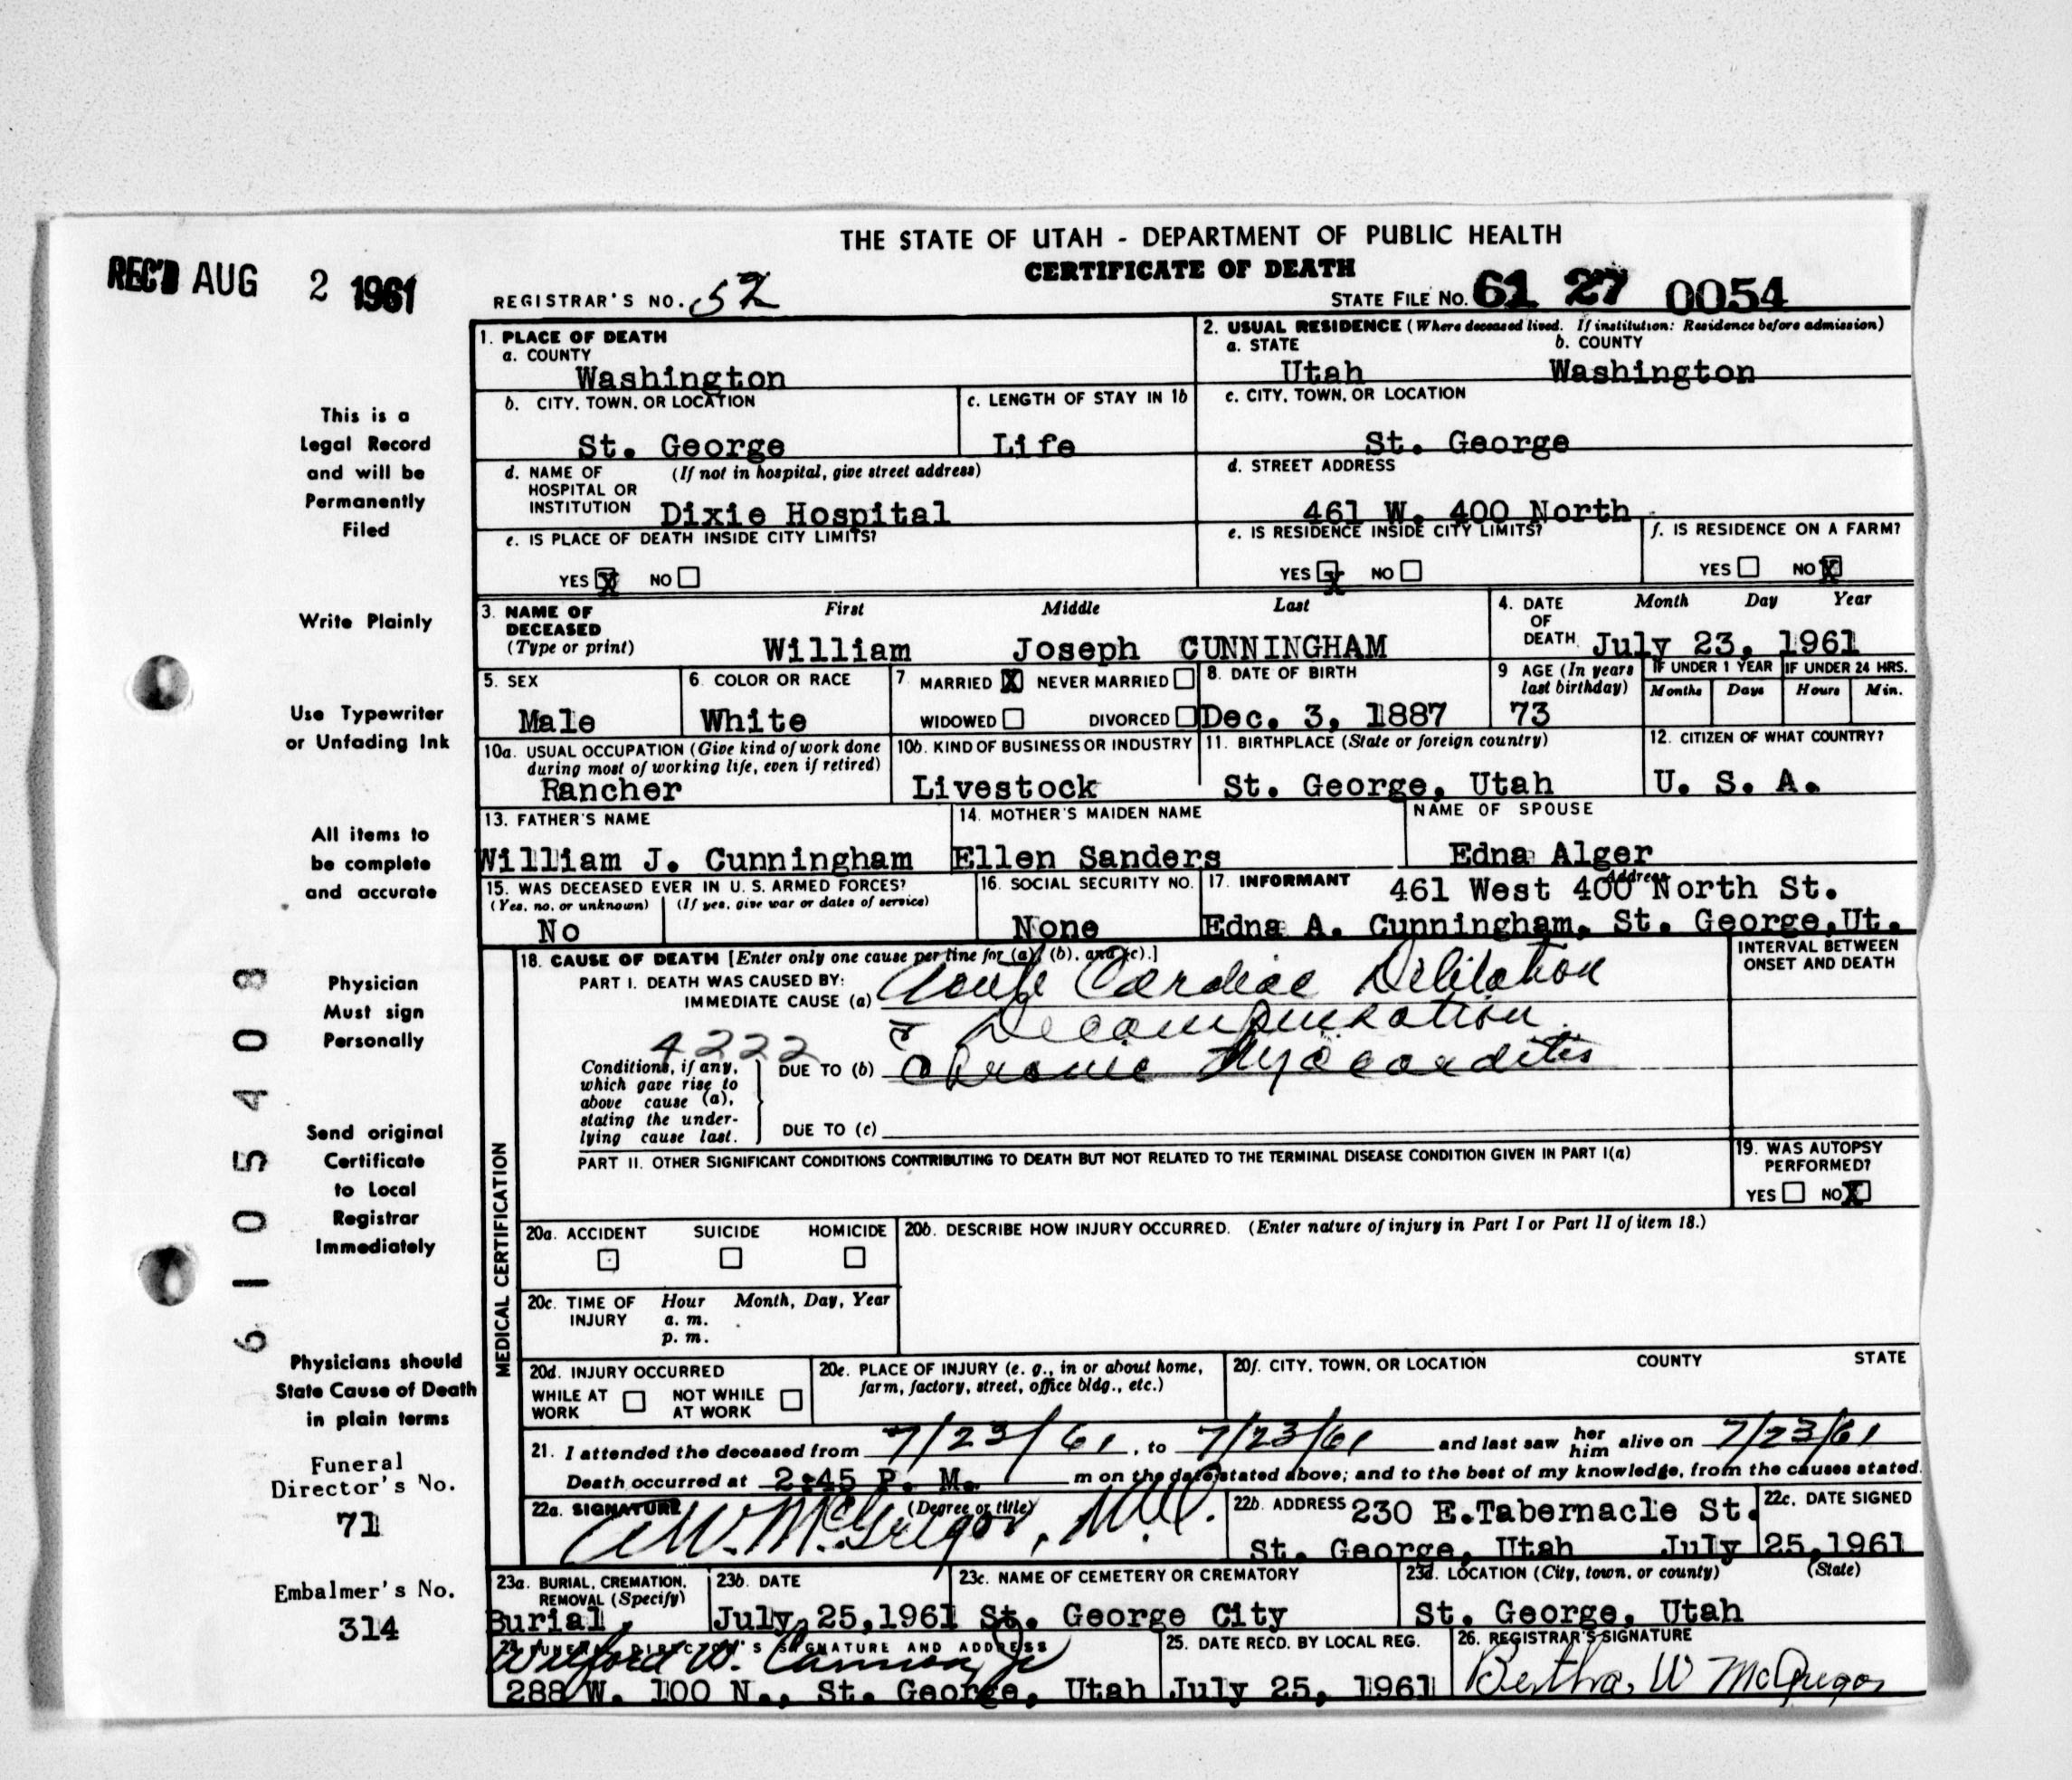 THE STATE OF UTAH - DEPARTMENT OF PUBLIC HEALTH
CERTIFICATE OF DEATH
REC'D AUG 2 1961
REGISTRAR'S NO. 52
STATE FILE NO. 61 27 0054
1. PLACE OF DEATH
a. COUNTY
Washington
2. USUAL RESIDENCE (Where deceased lived. If institution: Residence before admission)
a. STATE b. COUNTY
Utah Washington
b. CITY, TOWN, OR LOCATION
St. George
c. LENGTH OF STAY IN 1b
Life
c. CITY, TOWN, OR LOCATION
St. George
d. NAME OF (If not in hospital, give street address)
HOSPITAL OR
INSTITUTION Dixie Hospital
d. STREET ADDRESS
461 W. 400 North
e. IS PLACE OF DEATH INSIDE CITY LIMITS?
YES X NO
e. IS RESIDENCE INSIDE CITY LIMITS?
YES X NO
f. IS RESIDENCE ON A FARM?
YES NO X
3. NAME OF DECEASED (Type or print)
First Middle Last
William Joseph CUNNINGHAM
4. DATE OF DEATH
Month Day Year
July 23, 1961
5. SEX
Male
6. COLOR OR RACE
White
7. MARRIED X NEVER MARRIED
WIDOWED DIVORCED
8. DATE OF BIRTH
Dec. 3, 1887
9 AGE (In years last birthday)
73
IF UNDER 1 YEAR IF UNDER 24 HRS.
Months Days Hours Min.
10a. USUAL OCCUPATION (Give kind of work done
during most of working life, even if retired)
Rancher
10b. KIND OF BUSINESS OR INDUSTRY
Livestock
11. BIRTHPLACE (State or foreign country)
St. George, Utah
12. CITIZEN OF WHAT COUNTRY?
U. S. A.
13. FATHER'S NAME
William J. Cunningham
14. MOTHER'S MAIDEN NAME
Ellen Sanders
NAME OF SPOUSE
Edna Alger
15. WAS DECEASED EVER IN U. S. ARMED FORCES?
(Yes, no, or unknown) (If yes, give war or dates of service)
No
16. SOCIAL SECURITY NO.
None
17. INFORMANT Address
461 West 400 North St.
Edna A. Cunningham, St. George, Ut.
MEDICAL CERTIFICATION
18. CAUSE OF DEATH [Enter only one cause per line for (a), (b), and (c).]
INTERVAL BETWEEN
ONSET AND DEATH
PART I. DEATH WAS CAUSED BY:
IMMEDIATE CAUSE (a) Acute Cardiac Dilitation
Decompensation
4222
Conditions, if any,
which gave rise to
above cause (a),
stating the under-
lying cause last.
DUE TO (b) Chronic Myocarditis
DUE TO (c)
PART II. OTHER SIGNIFICANT CONDITIONS CONTRIBUTING TO DEATH BUT NOT RELATED TO THE TERMINAL DISEASE CONDITION GIVEN IN PART I(a)
19. WAS AUTOPSY
PERFORMED?
YES NO X
20a. ACCIDENT SUICIDE HOMICIDE
20b. DESCRIBE HOW INJURY OCCURRED. (Enter nature of injury in Part I or Part II of item 18.)
20c. TIME OF INJURY
Hour Month, Day, Year
a. m.
p. m.
20d. INJURY OCCURRED
WHILE AT WORK NOT WHILE AT WORK
20e. PLACE OF INJURY (e. g., in or about home,
farm, factory, street, office bldg., etc.)
20f. CITY, TOWN, OR LOCATION COUNTY STATE
21. I attended the deceased from 7/23/61, to 7/23/61 and last saw her him alive on 7/23/61
Death occurred at 2:45 P. M. m on the date stated above; and to the best of my knowledge, from the causes stated.
22a. SIGNATURE (Degree or title)
A W. McGregor, M.D.
22b. ADDRESS 230 E.Tabernacle St.
St. George, Utah
22c. DATE SIGNED
July 25,1961
23a. BURIAL, CREMATION,
REMOVAL (Specify)
Burial
23b. DATE
July 25,1961
23c. NAME OF CEMETERY OR CREMATORY
St. George City
23d. LOCATION (City, town, or county) (State)
St. George, Utah
24. FUNERAL DIRECTOR'S SIGNATURE AND ADDRESS
Wilford W. Cannon Jr
288 W. 100 N., St. George, Utah
25. DATE RECD. BY LOCAL REG.
July 25, 1961
26. REGISTRAR'S SIGNATURE
Bertha W McGregor
This is a
Legal Record
and will be
Permanently
Filed
Write Plainly
Use Typewriter
or Unfading Ink
All items to
be complete
and accurate
Physician
Must sign
Personally
Send original
Certificate
to Local
Registrar
Immediately
Physicians should
State Cause of Death
in plain terms
Funeral
Director's No.
71
Embalmer's No.
314
6105403